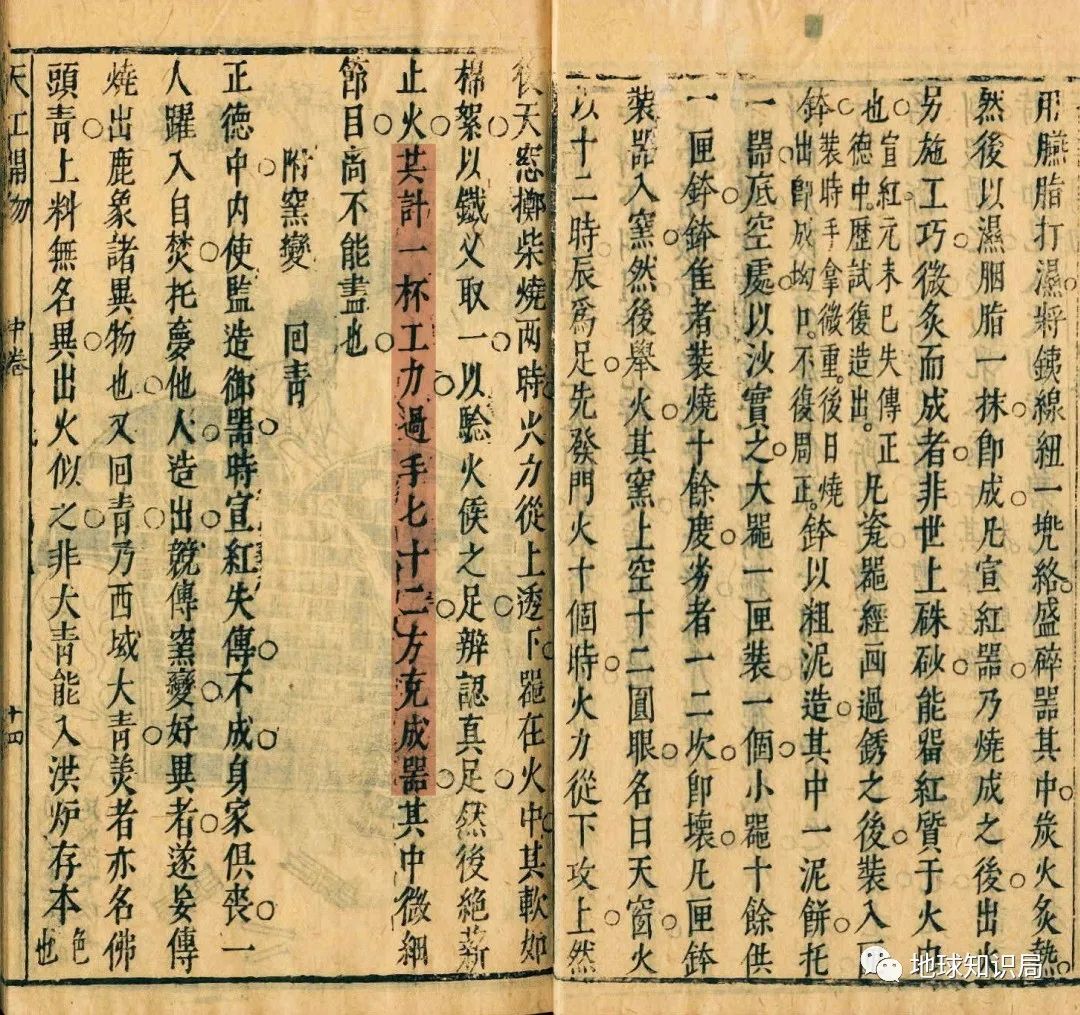 用臙脂打濕將銕線紐一兜絡盛碎器其中炭火炙熱
然後以濕胭脂一抹即成凡宣紅器乃燒成之後出火
另施工巧微炙而成者非世上硃砂能留紅質于火内
也宣紅元末已失傳正德中歷試復造出凡瓷器經画過銹之後裝入匣
鉢裝時手拿微重後日燒出即成坳口不復周正鉢以粗泥造其中一泥餅托
一器底空處以沙實之大器一匣裝一個小器十餘供
一匣鉢鉢佳者裝燒十餘度劣者一二次即壞凡匣鉢
裝器入窯然後舉火其窯上空十二圓眼名曰天窗火
以十二時辰爲足先發門火十個時火力從下攻上然
後天窓擲柴燒两時火力從上透下器在火中其軟如
棉絮以鐵义取一以驗火候之足辨認真足然後絕薪
止火共計一杯工力過手七十二方克成器其中微細
節目尚不能盡也
附窯變 回青
正德中内使監造御器時宣紅失傳不成身家俱喪一
人躍入自焚托夢他人造出競傳窯變好異者遂妄傳
燒出鹿象諸異物也又回青乃西域大青美者亦名佛
頭青上料無名異出火似之非大青能入洪炉存本色也
天工開物 中卷 十四
地球知识局